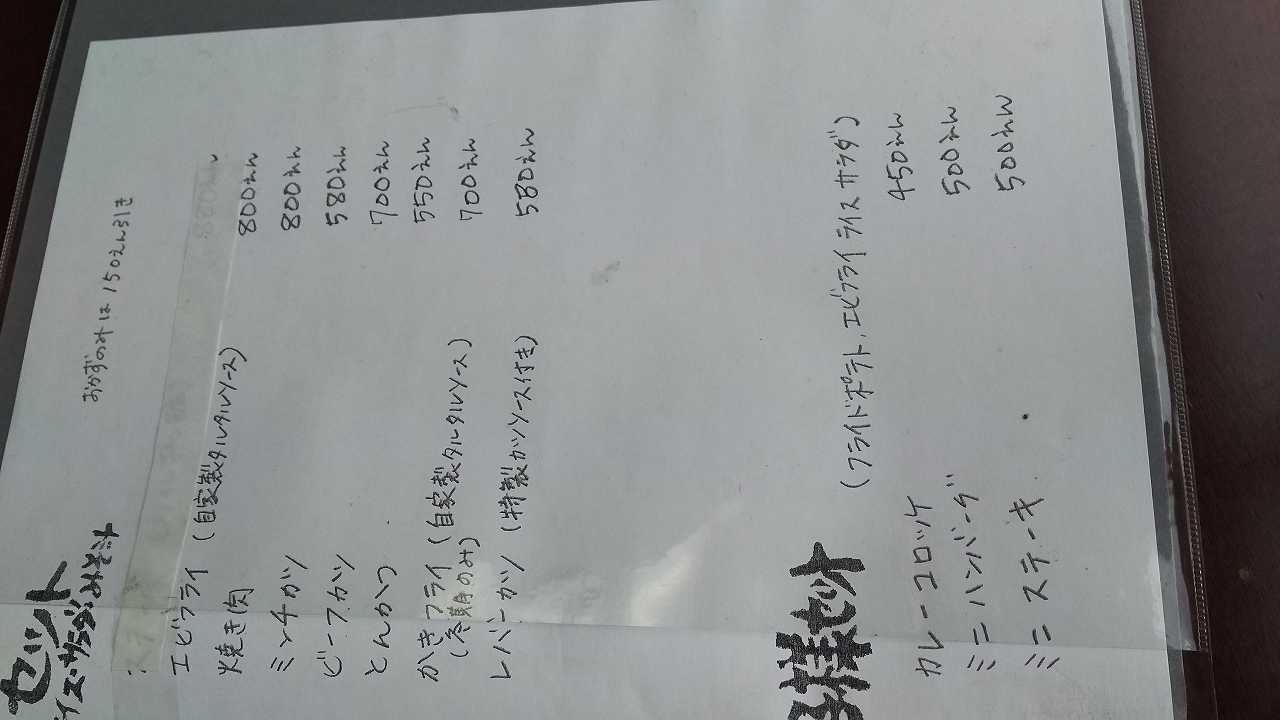 セット
イス・サラダ・みそ汁 おかずのみは150えん引き
エビフライ (自家製タルタルソース) 800えん
焼き肉 800えん
ミンチカツ 580えん
ビーフカツ 700えん
とんかつ 550えん
かきフライ (自家製タルタルソース) 700えん
(冬期のみ)
レバーカツ (特製カツソース付き) 580えん
子様セット (フライドポテト、エビフライ ライス サラダ)
カレーコロッケ 450えん
ミニハンバーグ 500えん
ミニステーキ 500えん